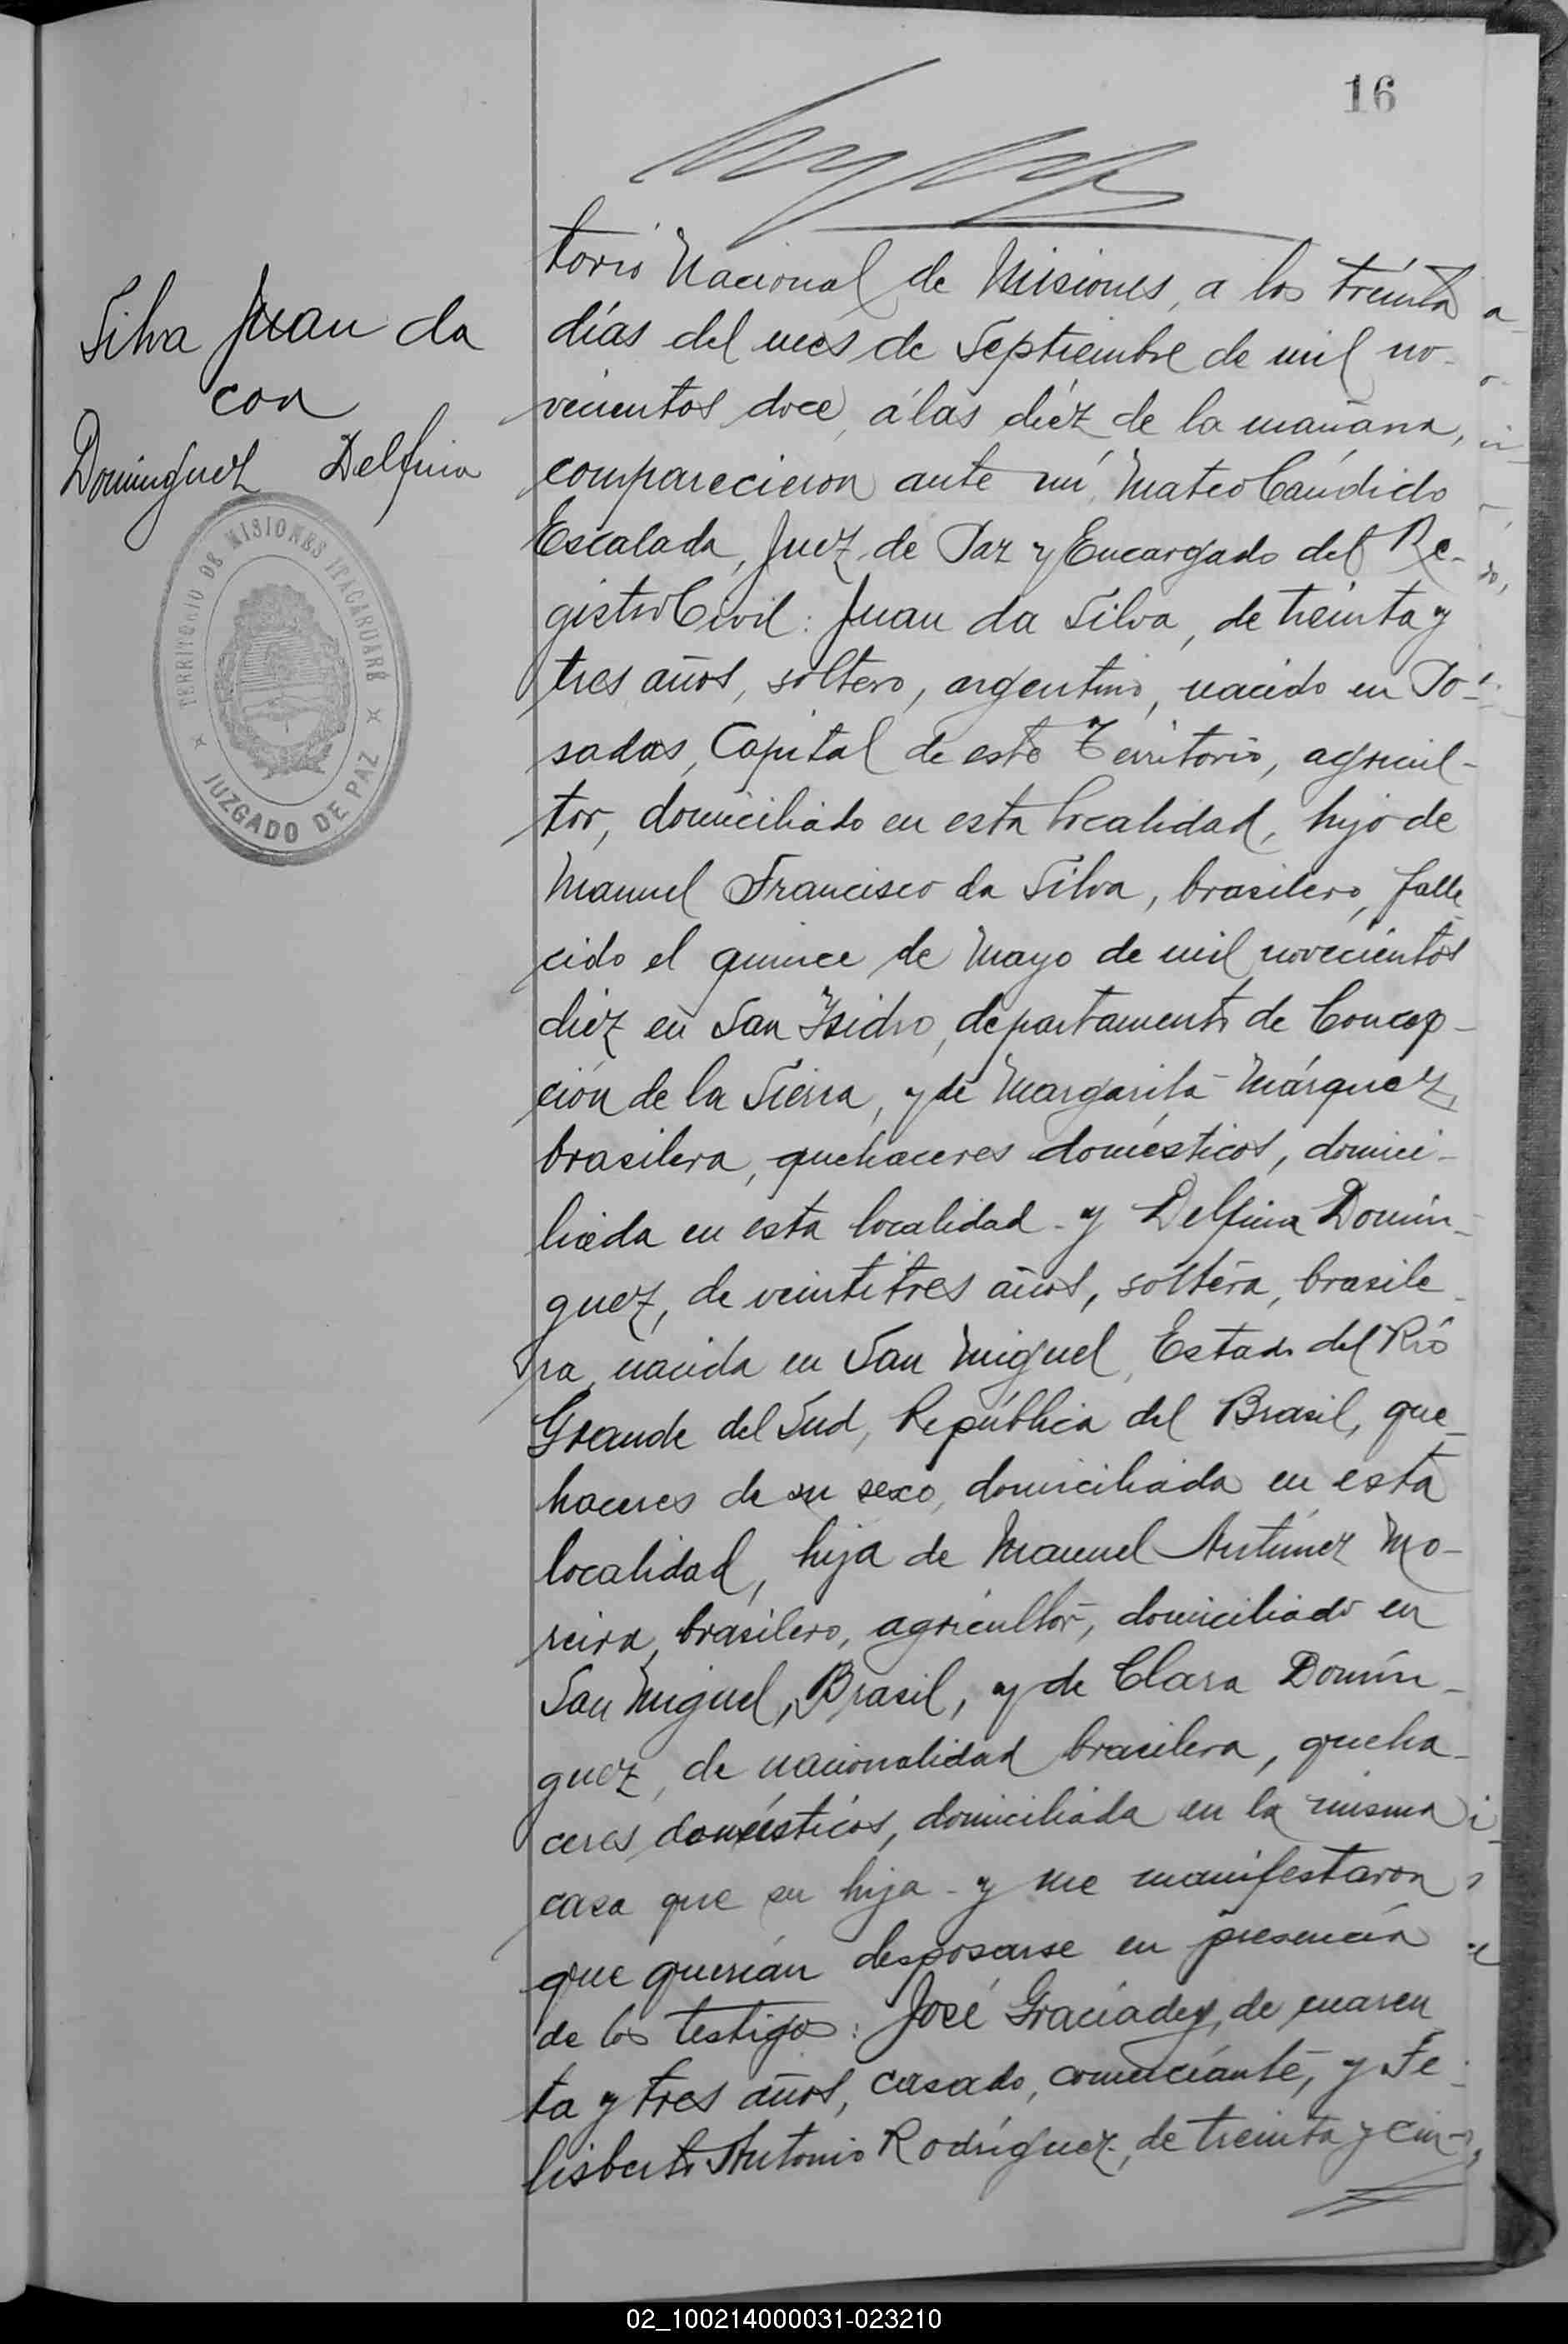 16
Silva Juan da
con
Dominguez Delfina
TERRITORIO DE MISIONES ITACARUARÉ
JUZGADO DE PAZ
torio Nacional de Misiones, a los treinta
días del mes de Septiembre de mil no-
vecientos doce, á las diéz de la mañana,
comparecieron ante mí, Mateo Cándido
Escalada, Juez de Paz y Encargado del Re-
gistro Civil: Juan da Silva, de treinta y
tres años, soltero, argentino, nacido en Po-
sadas, Capital de este Territorio, agricul-
tor, domiciliado en esta localidad, hijo de
Manuel Francisco da Silva, brasilero, falle-
cido el quince de Mayo de mil novecientos
diéz en San Isidro, departamento de Concep-
ción de la Sierra, y de Margarita Márquez,
brasilera, quehaceres domésticos, domici-
liada en esta localidad - y Delfina Domín-
guez, de veintitres años, soltera, brasile-
ra, nacida en San Miguel, Estado del Río
Grande del Sud, República del Brasil, que-
haceres de su sexo, domiciliada en esta
localidad, hija de Manuel Antúnez Mo-
reira, brasilero, agricultor, domiciliado en
San Miguel, Brasil, y de Clara Domín-
guez, de nacionalidad brasilera, queha-
ceres domésticos, domiciliada en la misma
casa que su hija - y me manifestaron
que querían desposarse en presencia
de los testigos: José Graciadey, de cuaren
ta y tres años, casado, comerciante, y Fe-
lisberto Antonio Rodríguez, de treinta y cin-
02_100214000031-023210